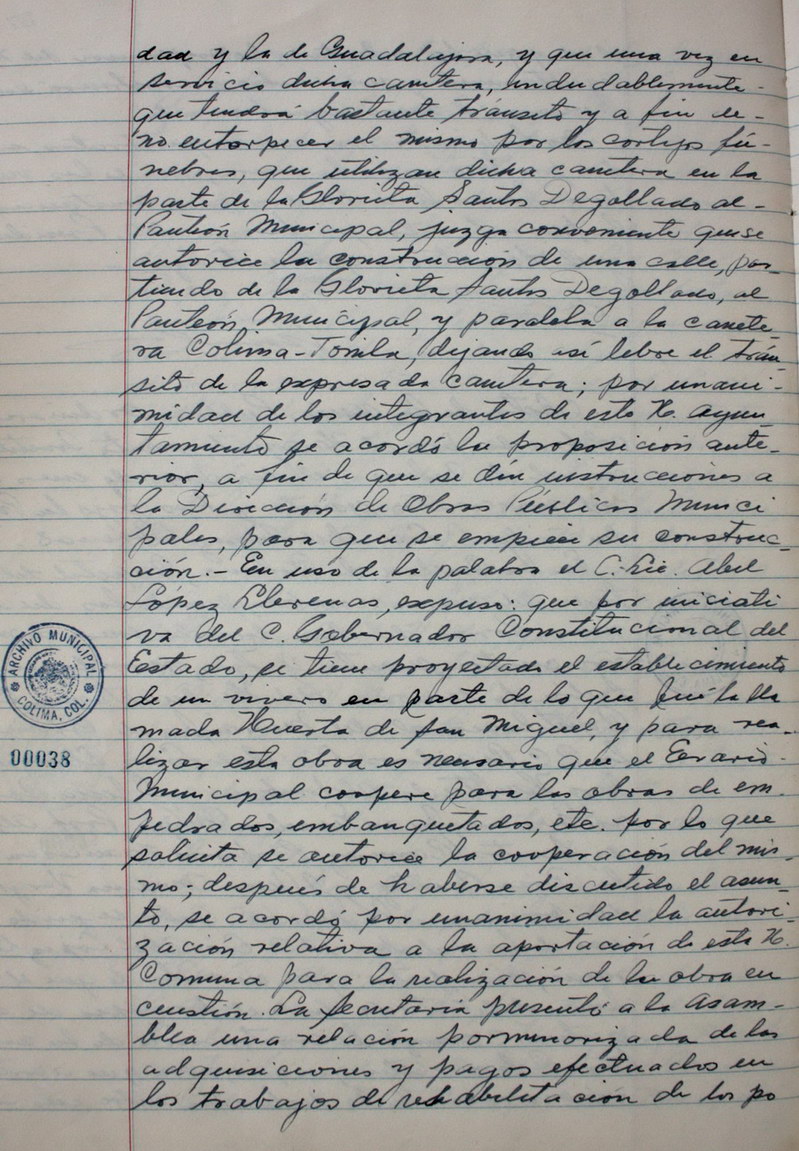 dad y la de Guadalajara, y que una vez en
servicio dicha carretera, indudablemente-
que tendrá bastante tránsito y a fin de-
no entorpecer el mismo por los cortejos fú-
nebres, que utilizan dicha carretera en la
parte de la Glorieta Santos Degollado al-
Panteón Municipal, juzga conveniente que se
autorice la construcción de una calle, par-
tiendo de la Glorieta Santos Degollado, al
Panteón Municipal, y paralela a la carrete-
ra Colima-Tonila, dejando así libre el trán-
sito de la expresada carretera; por unani-
midad de los integrantes de este H. Ayun-
tamiento se acordó la proposición ante-
rior, a fin de que se den instrucciones a
la Dirección de Obras Públicas Munici
pales, para que se empiece su construc-
ción.- En uso de la palabra el C. Lic. Abel
López Llerenas, expuso: que por iniciati
va del C. Gobernador Constitucional del
Estado, se tiene proyectado el establecimiento
de un vivero en parte de lo que fué la lla
mada Huerta de San Miguel, y para rea-
lizar esta obra es necesario que el Erario-
Municipal coopere para las obras de em-
pedrados, embanquetados, etc. por lo que
solicita se autorice la cooperación del mis-
mo; después de haberse discutido el asun-
to, se acordó por unanimidad la autori-
zación relativa a la aportación de esta H.
Comuna para la realización de la obra en
cuestión. La Secretaría presentó a la Asam-
blea una relación pormenorizada de las
adquisiciones y pagos efectuados en
los trabajos de rehabilitación de los po
ARCHIVO MUNICIPAL
COLIMA, COL.
00038